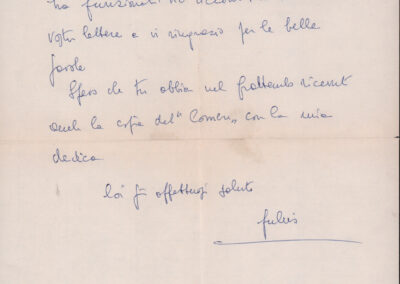 ha funzionato
vostre lettere e vi ringrazio per le belle
parole
Spero che tu abbia nel frattempo ricevuto
anche la copia del " " con la mia
dedica
Coi più affettuosi saluti